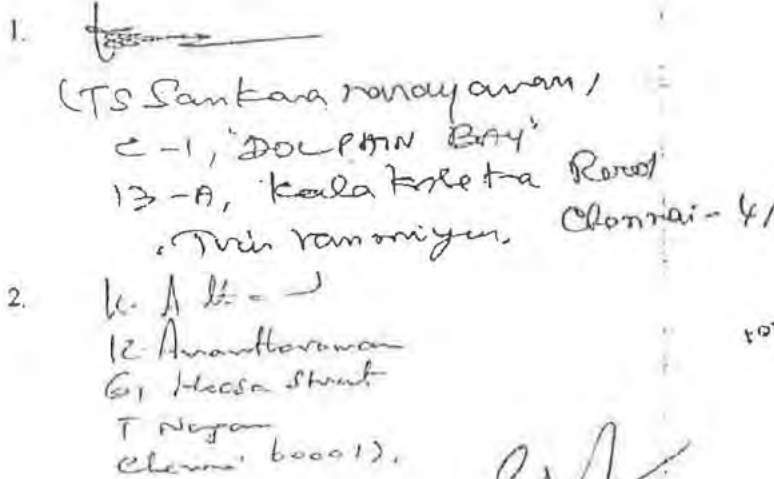 1.
(TS Sankaranarayanan)
C-1, "DOLPHIN BAY"
13-A, Kalakshetra Road
Tiruvanmiyur, Chennai - 41
2.
K. Anantharaman
6, Street
T Nagar
Chennai 600017.